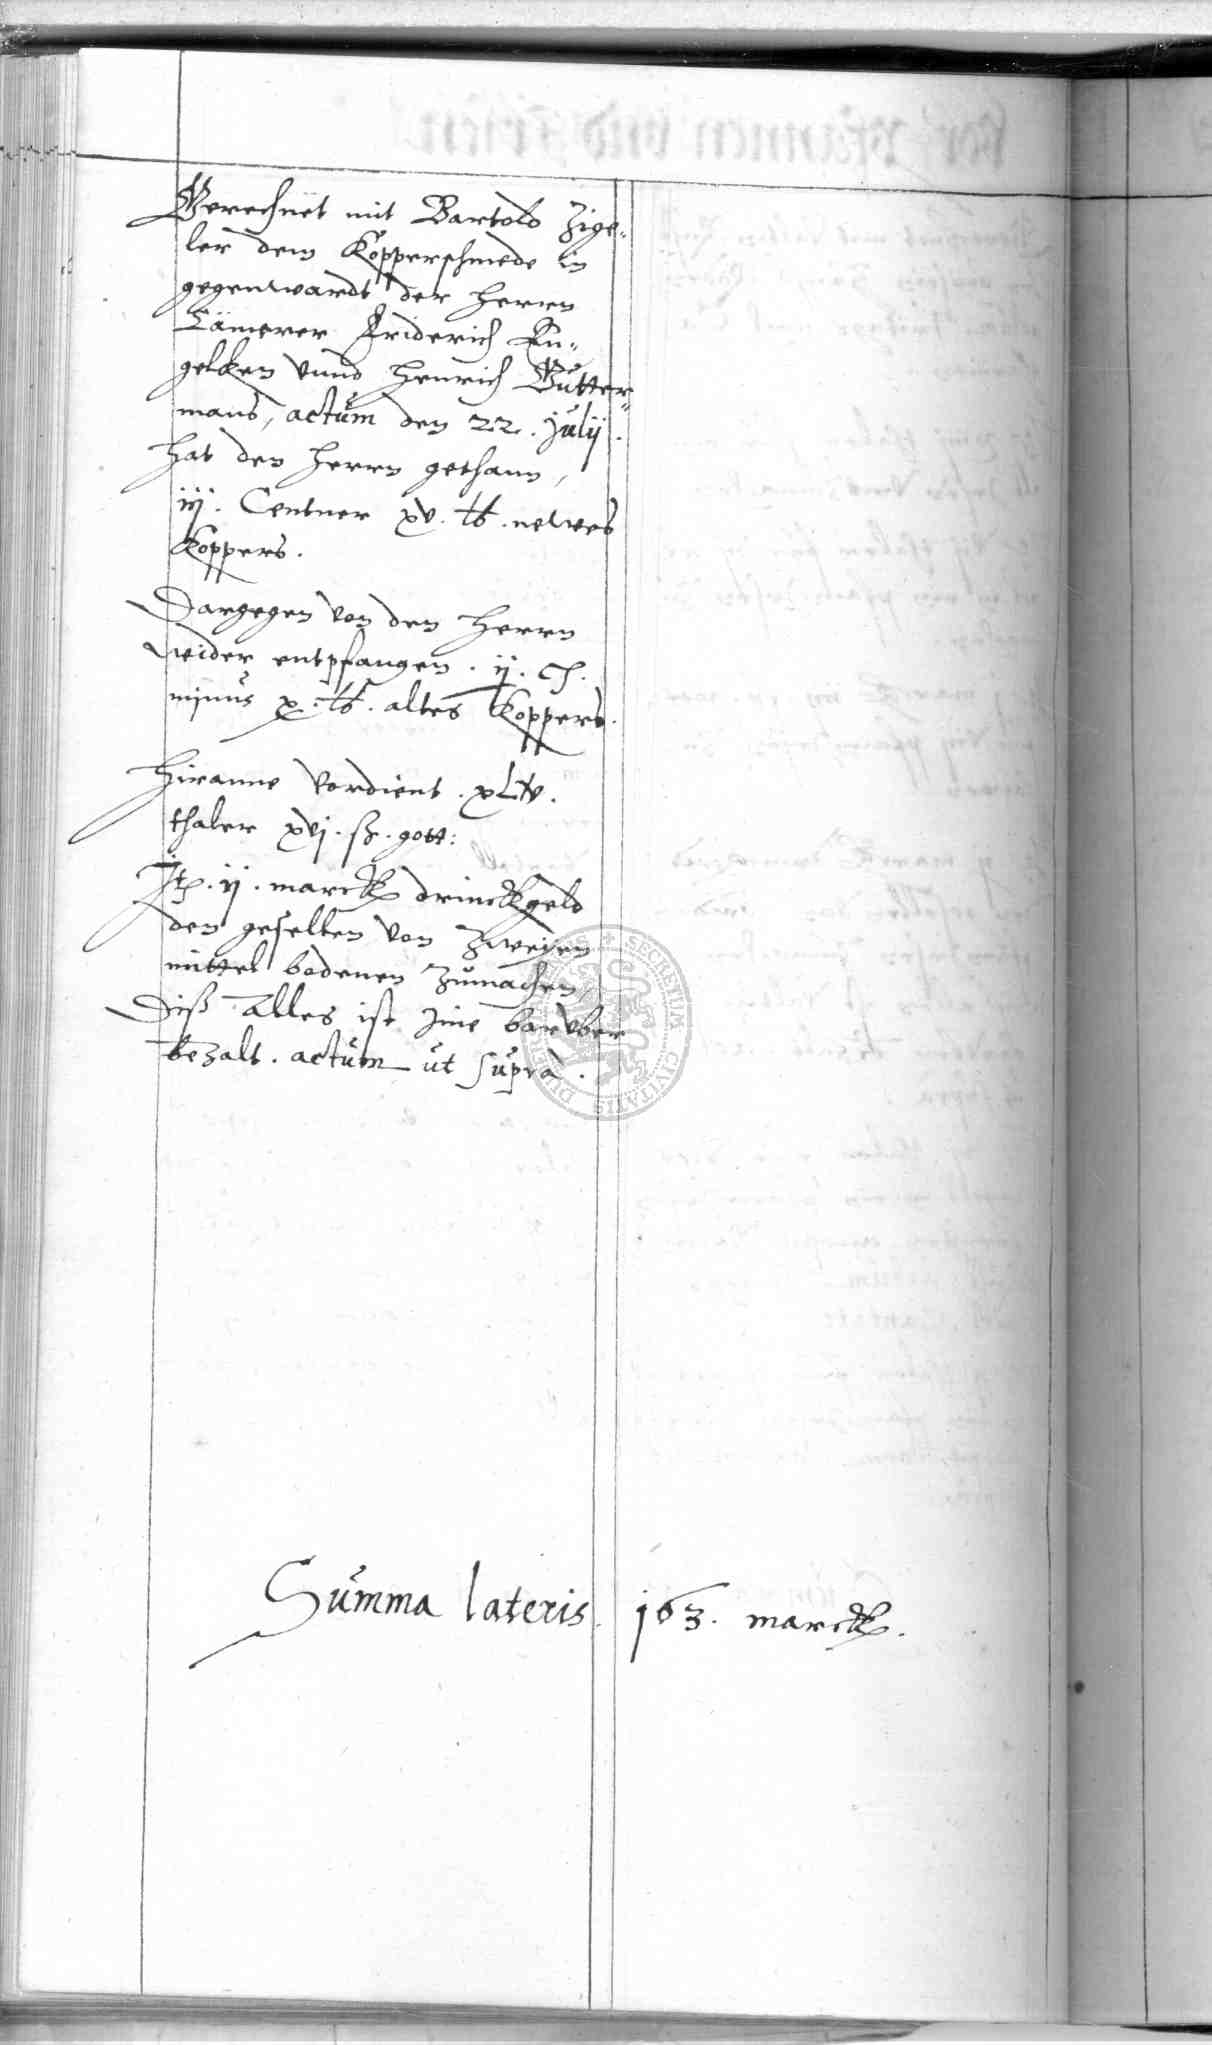 Gerechnet mit Bartold Zige=
ler dem Kopperschmede in
gegenwardt der herrn
Cämerer Friderich En=
gelken vnnd Henrich Gutter=
mans, actum den 22. Julij.
hat den herrn gethann,
iij. Centner xv. ℔. newes
Koppers.
Dargegen von den herrn
wider entpfangen. ij. C.
minus x. ℔. altes Koppers.
Hiranne vordient. xLiv.
thaler xvj. ß. gott:
It. ij. marck drinckgeld
den gesellen von Zweyen
mittel bodenen Zumachen
Diß Alles ist Ime bar vber
bezalt. actum ut supra.
Summa lateris. 163. marck.
SECRETUM CIVITATIS